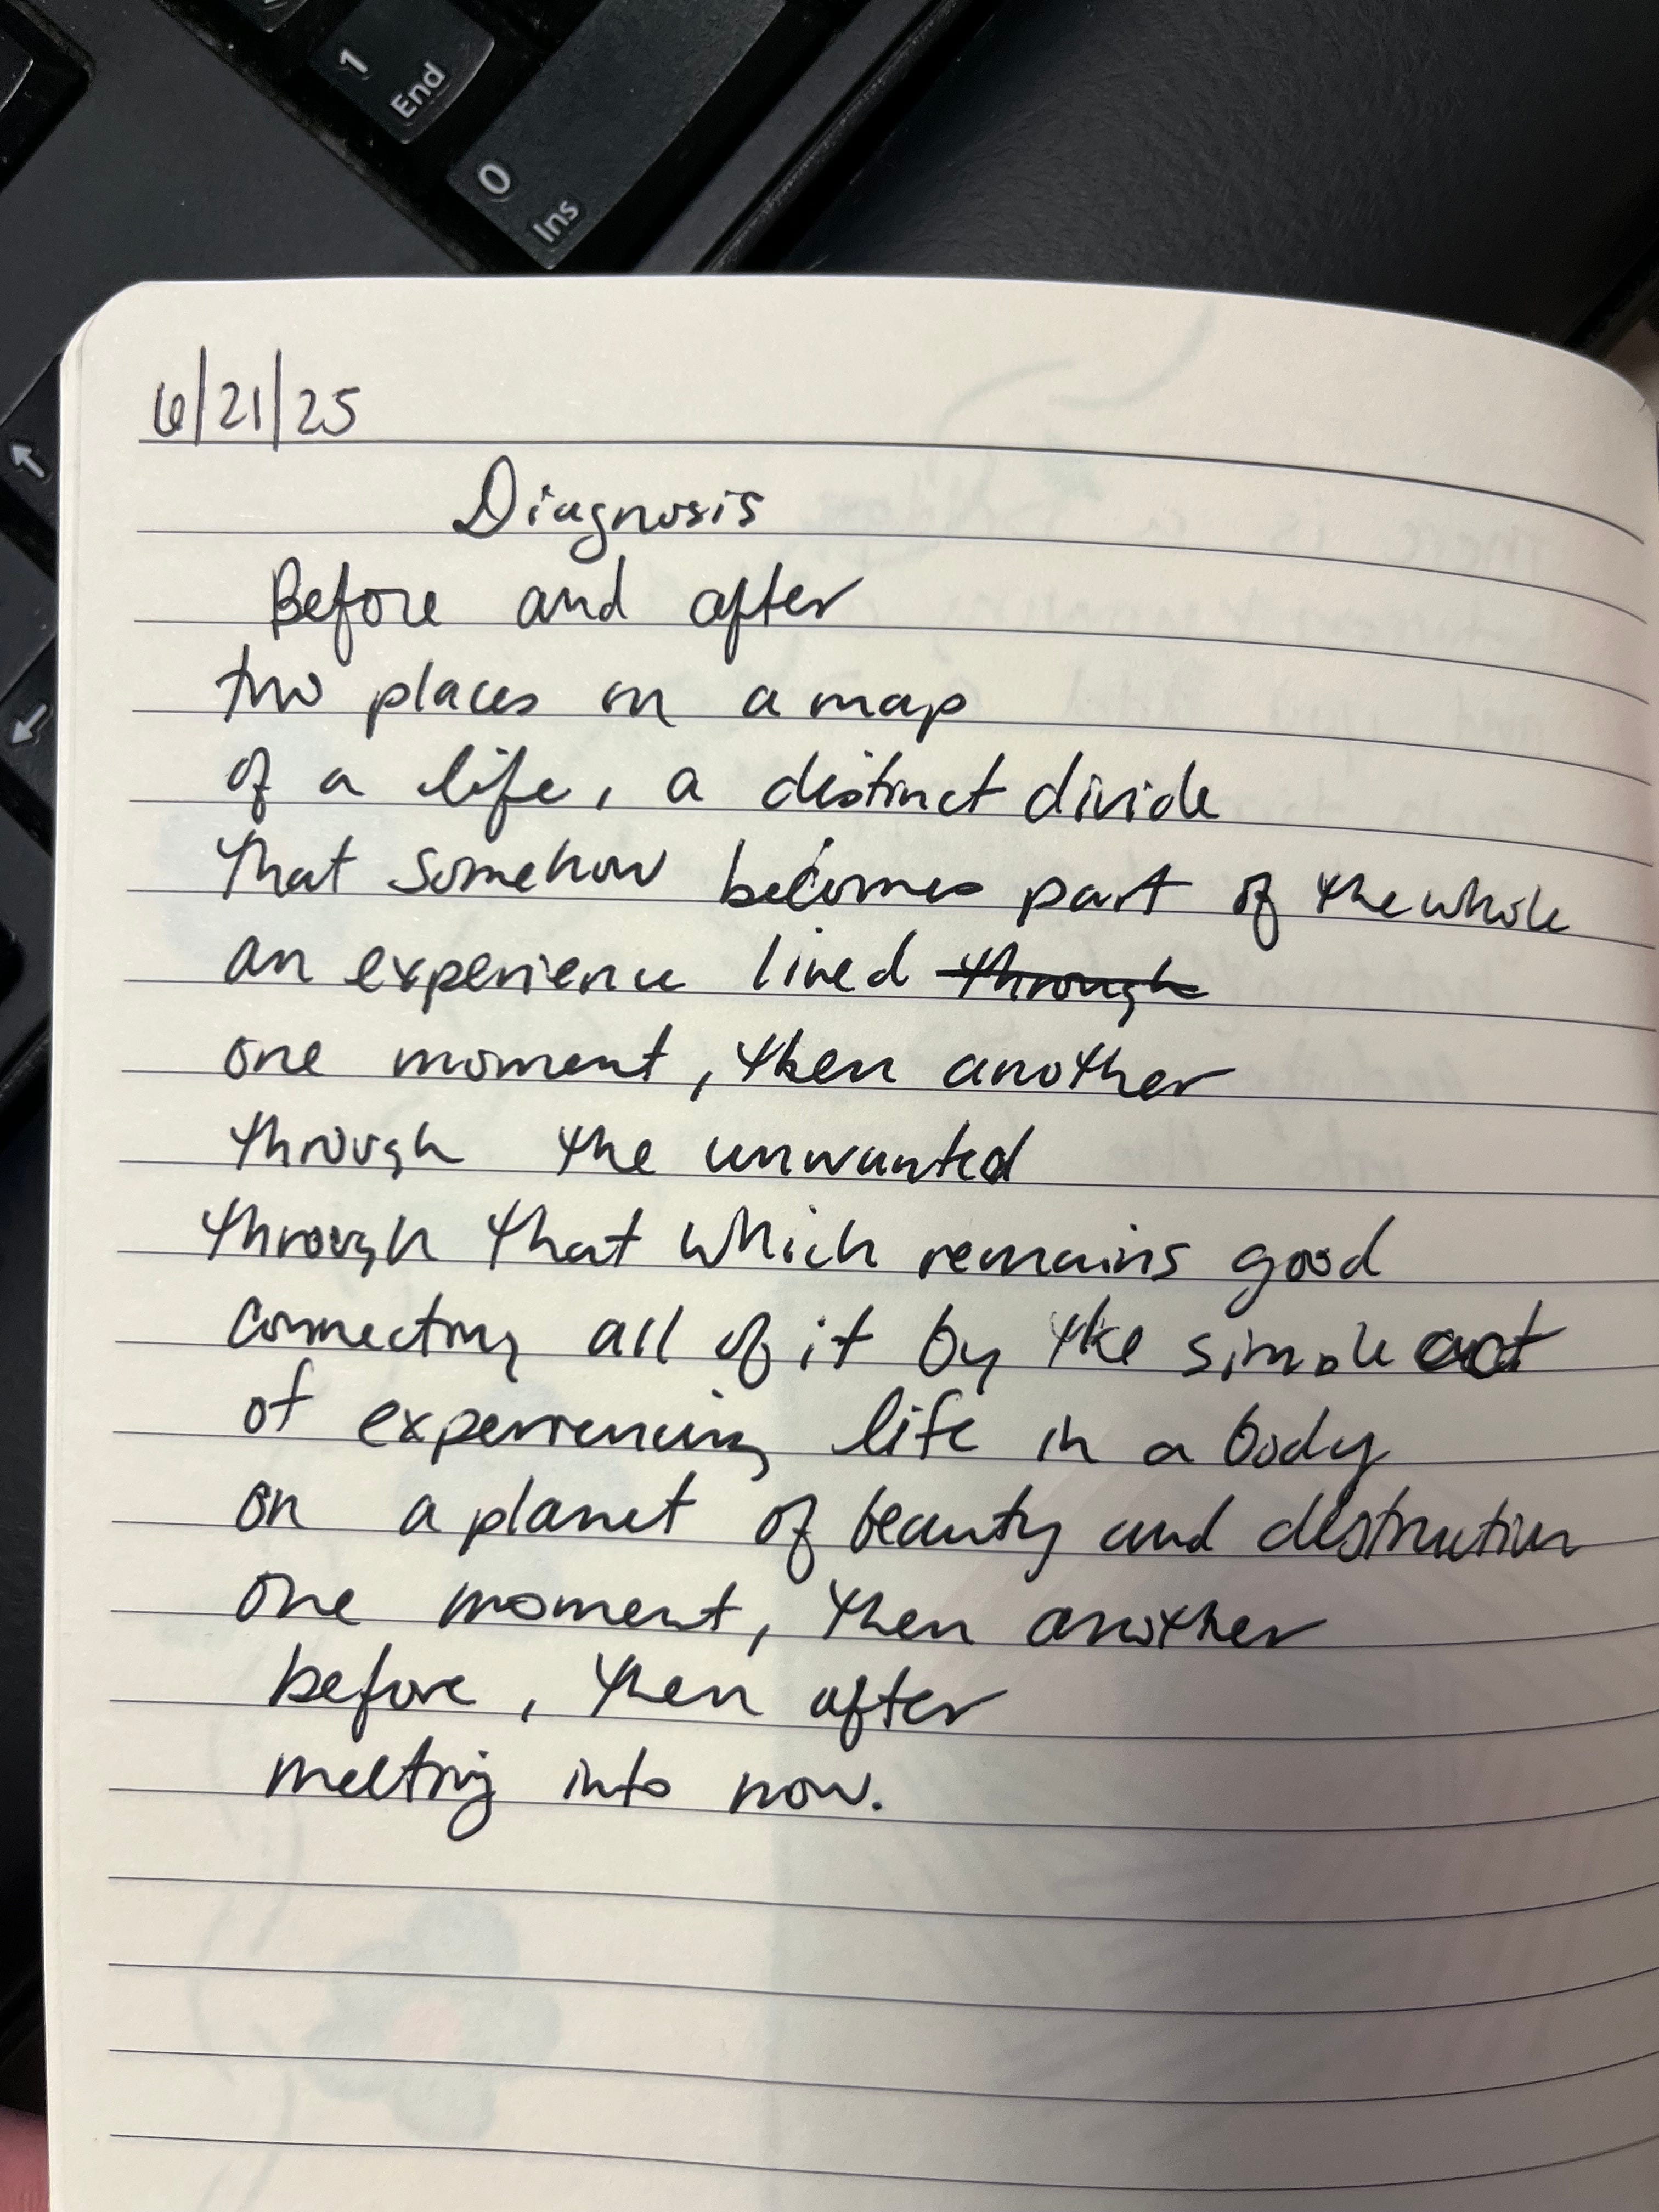 1
End
0
Ins
6/21/25
Diagnosis
Before and after
two places on a map
of a life, a distinct divide
that somehow becomes part of the whole
an experience lived through
one moment, then another
through the unwanted
through that which remains good
connecting all of it by the simple act
of experiencing life in a body
on a planet of beauty and destruction
one moment, then another
before, then after
melting into now.